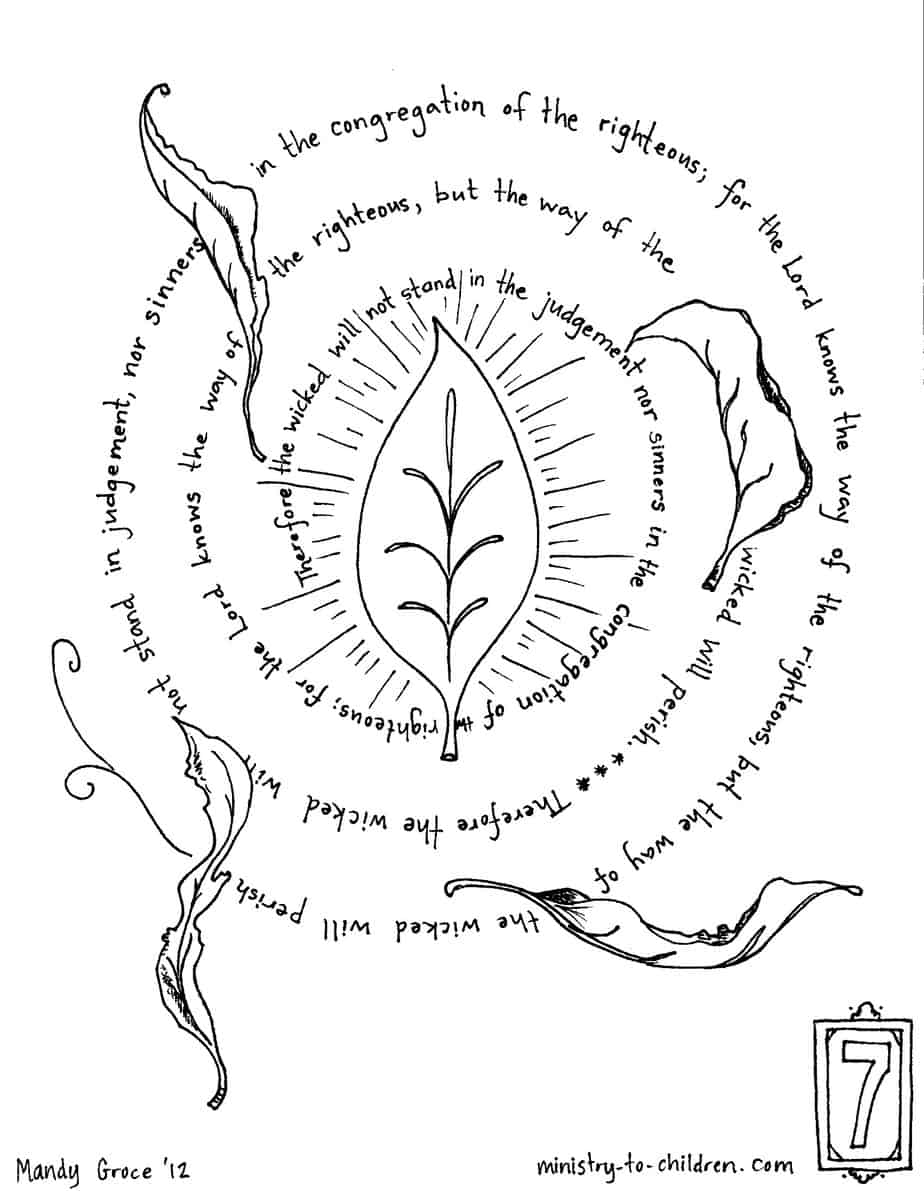 Therefore the wicked will not stand in the judgement nor sinners in the congregation of the righteous; for the Lord knows the way of
the righteous, but the way of the
wicked will perish. *** Therefore the wicked will
not stand in judgement, nor sinners
in the congregation of the righteous; for the Lord knows the way of the righteous, but the way of
the wicked will perish
7
Mandy Groce '12
ministry-to-children.com